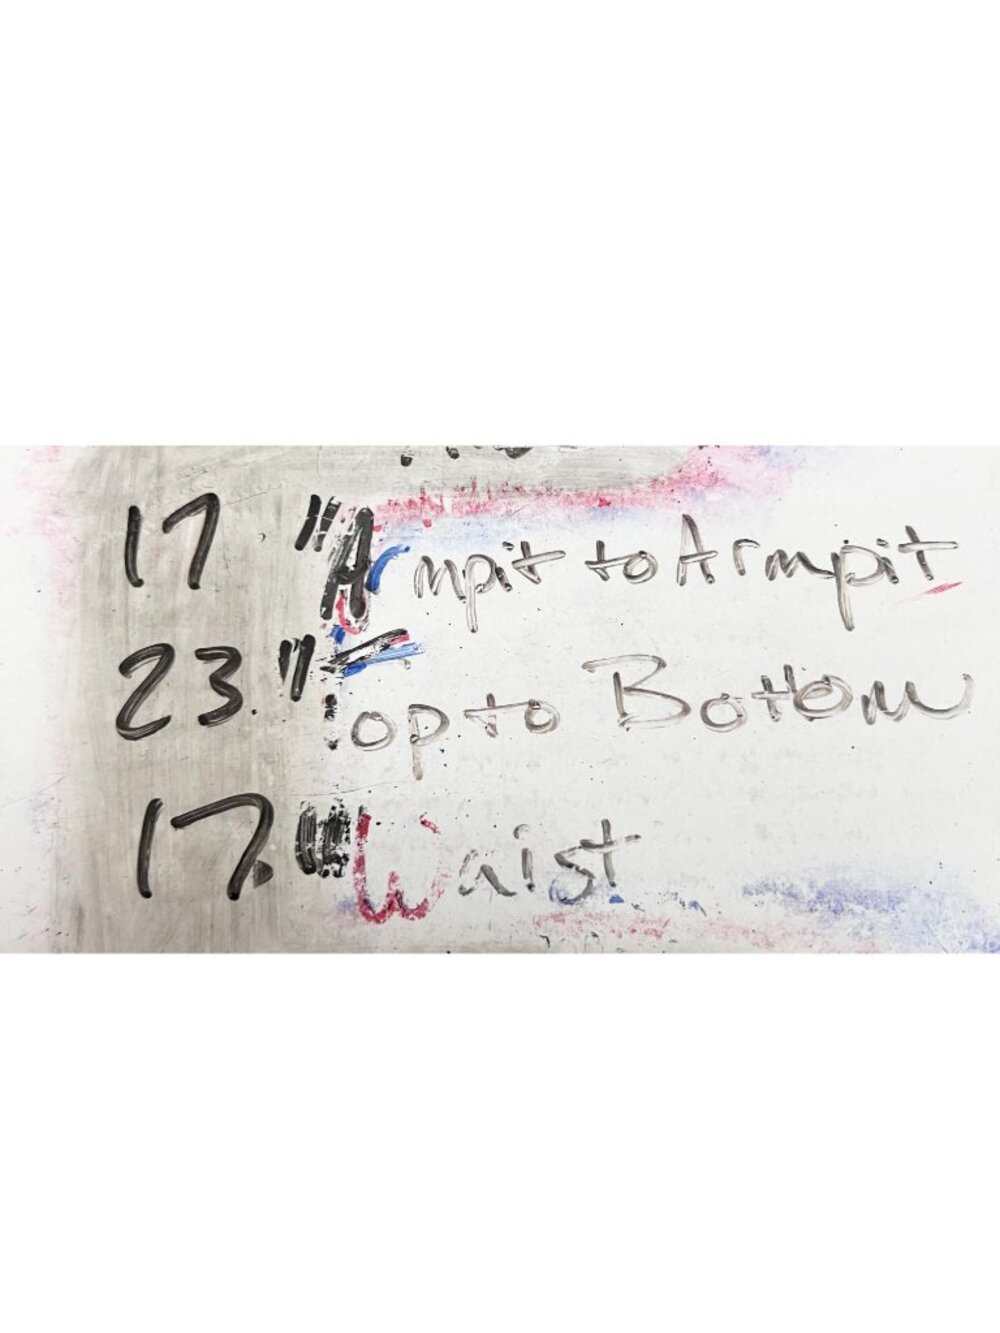 17 "Armpit to Armpit
23 "Top to Bottom
17 "Waist